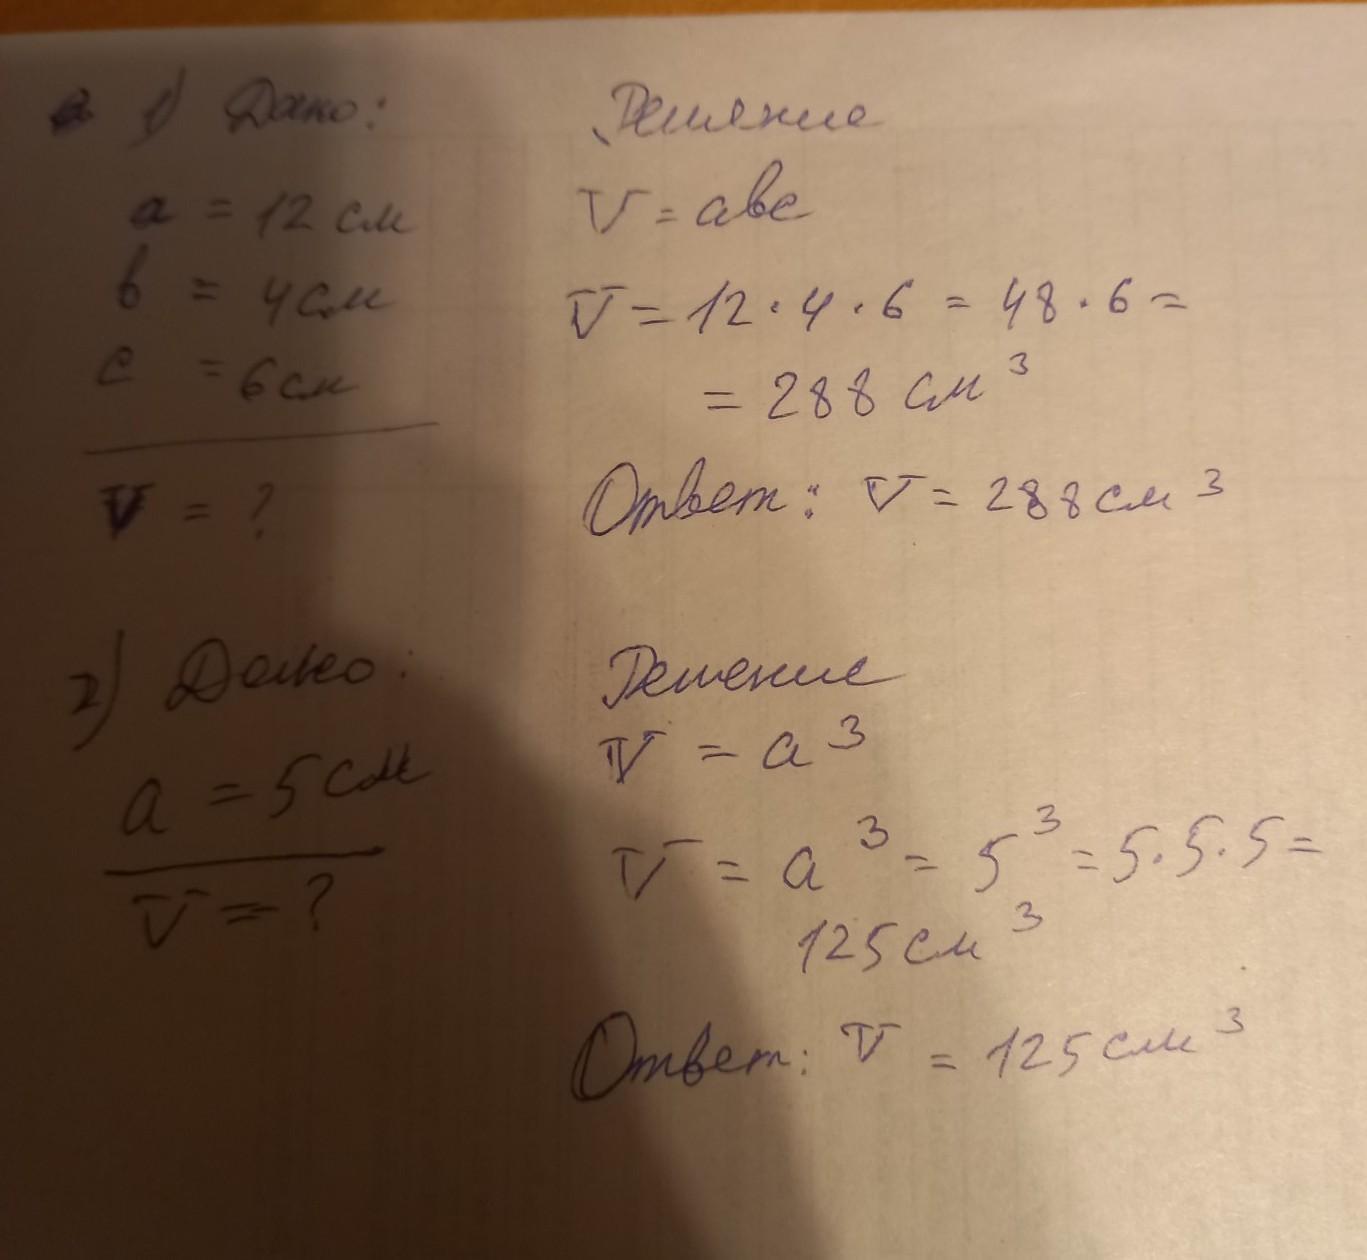 1) Дано:
a = 12 см
b = 4 см
c = 6 см
V = ?
Решение
V = abc
V = 12 · 4 · 6 = 48 · 6 =
= 288 см³
Ответ: V = 288 см³
2) Дано:
a = 5 см
V = ?
Решение
V = a³
V = a³ = 5³ = 5 · 5 · 5 =
125 см³
Ответ: V = 125 см³